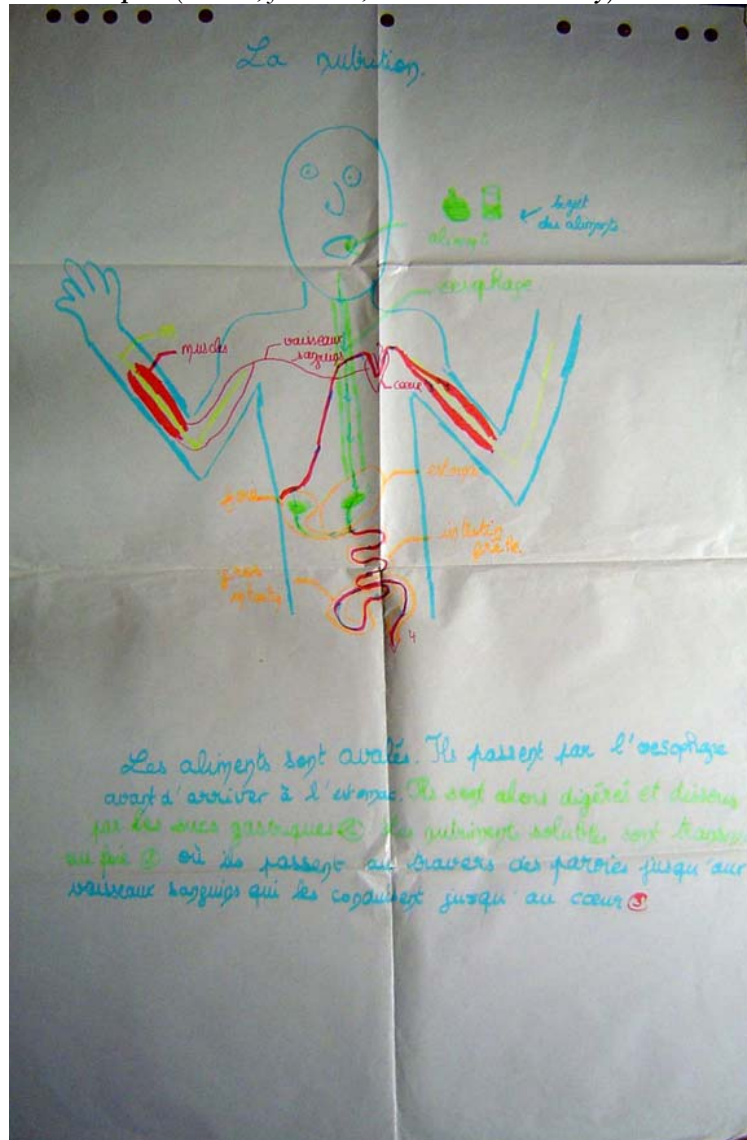 La nutrition.
trajet
des aliments
aliments
oesophage
os
muscles
vaisseaux
sanguins
coeur
foie
estomac
intestin
grêle
gros
intestin
4
Les aliments sont avalés. Ils passent par l'oesophage
avant d'arriver à l'estomac. Ils sont alors digérés et dissous
par les sucs gastriques les nutriment solubles sont transmis
au foie où ils passent au travers des parois jusqu'aux
vaisseaux sanguins qui les conduisent jusqu'au coeur 3